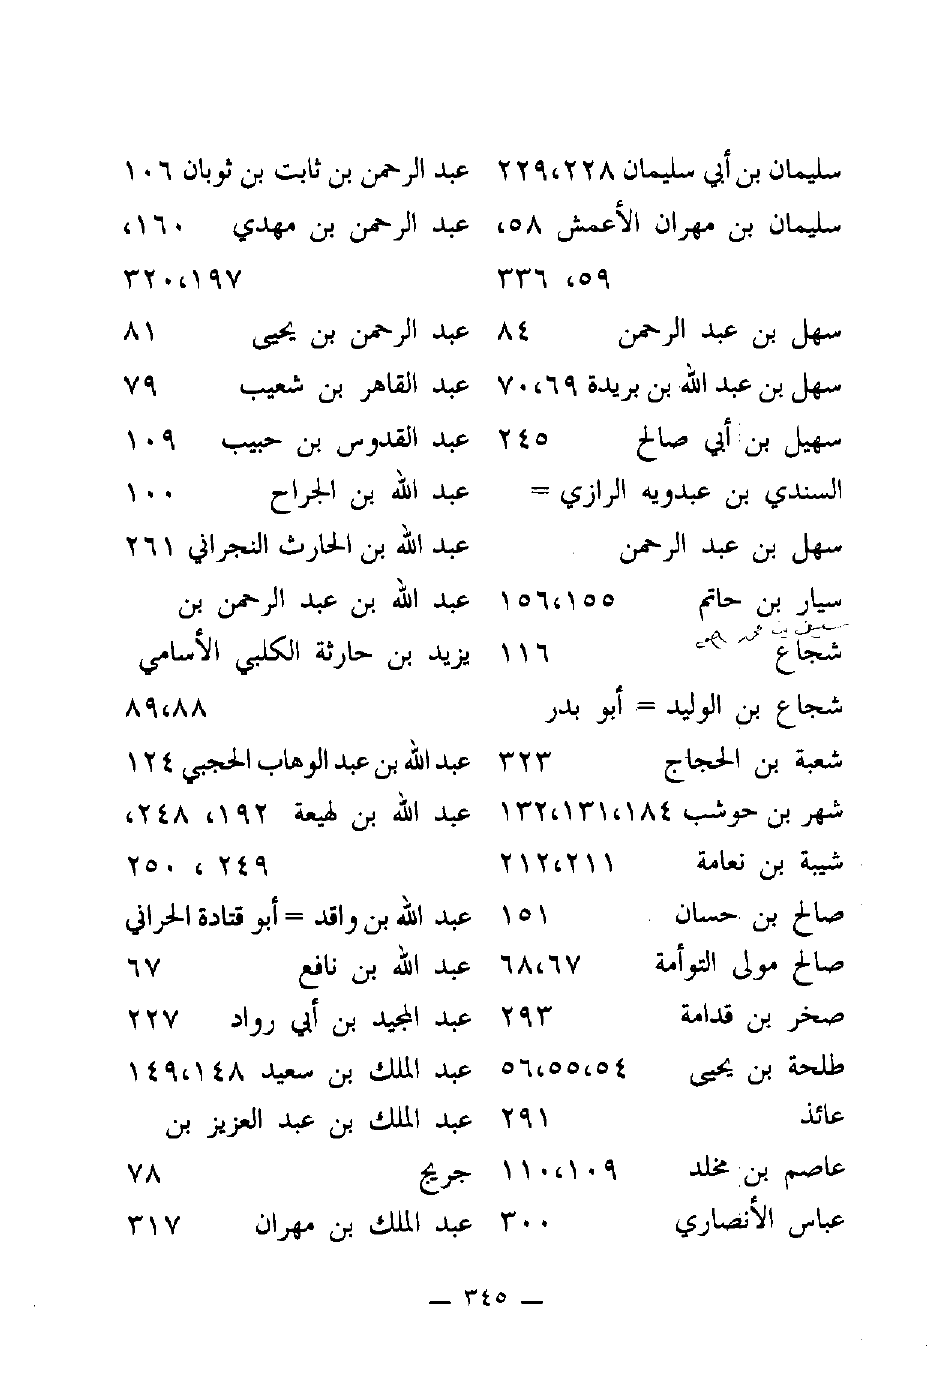 سليمان بن أبي سليمان ٢٢٨، ٢٢٩
سليمان بن مهران الأعمش ٥٨،
٥٩، ٣٣٦
سهل بن عبد الرحمن ٨٤
سهل بن عبد الله بن بريدة ٦٩، ٧٠
سهيل بن أبي صالح ٢٤٥
السندي بن عبدويه الرازي =
سهل بن عبد الرحمن
سيار بن حاتم ١٥٥، ١٥٦
شجاع ١١٦
شجاع بن الوليد = أبو بدر
شعبة بن الحجاج ٣٢٣
شهر بن حوشب ١٨٤، ١٣١، ١٣٢
شيبة بن نعامة ٢١١، ٢١٢
صالح بن حسان ١٥١
صالح مولى التوأمة ٦٧، ٦٨
صخر بن قدامة ٢٩٣
طلحة بن يحيى ٥٤، ٥٥، ٥٦
عائذ ٢٩١
عاصم بن مخلد ١٠٩، ١١٠
عباس الأنصاري ٣٠٠
عبد الرحمن بن ثابت بن ثوبان ١٠٦
عبد الرحمن بن مهدي ١٦٠،
١٩٧، ٣٢٠
عبد الرحمن بن يحيى ٨١
عبد القاهر بن شعيب ٧٩
عبد القدوس بن حبيب ١٠٩
عبد الله بن الجراح ١٠٠
عبد الله بن الحارث النجراني ٢٦١
عبد الله بن عبد الرحمن بن
يزيد بن حارثة الكلبي الأسامي
٨٨، ٨٩
عبد الله بن عبد الوهاب الحجبي ١٢٤
عبد الله بن لهيعة ١٩٢، ٢٤٨،
٢٤٩، ٢٥٠
عبد الله بن واقد = أبو قتادة الحراني
عبد الله بن نافع ٦٧
عبد المجيد بن أبي رواد ٢٢٧
عبد الملك بن سعيد ١٤٨، ١٤٩
عبد الملك بن عبد العزيز بن
جريج ٧٨
عبد الملك بن مهران ٣١٧
— ٣٤٥ —